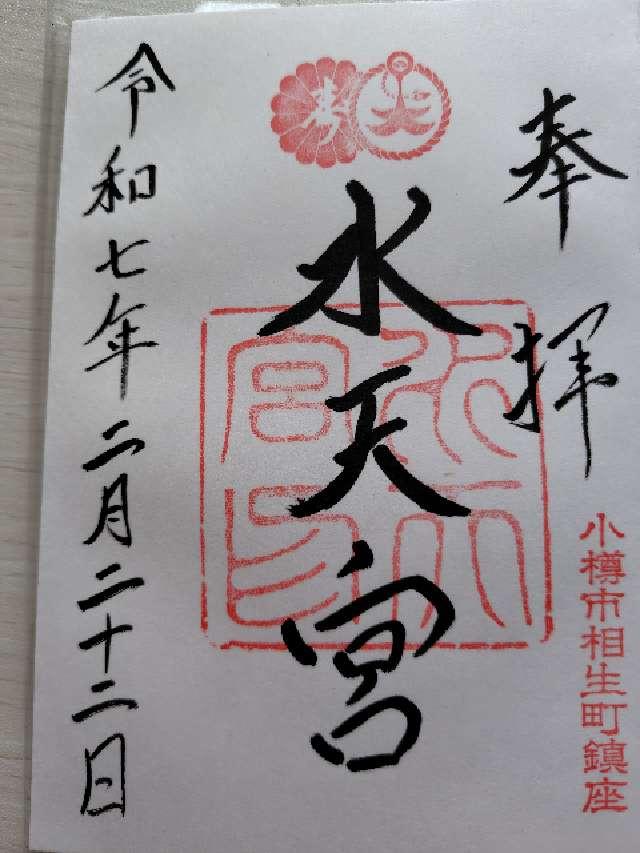 奉拝
小樽市相生町鎮座
水天宮
水天宮印
令和七年二月二十二日